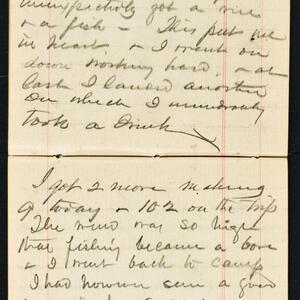 unexpectedly got a rise
& a fish - This put me
in heart, & I went on
down working hard, & at
last I landed another
on which I immediately
took a drink
I got 2 more making
9 today & 102 on the trip
The wind was so high
that fishing became a bore
& I went back to camp
I had however seen a good